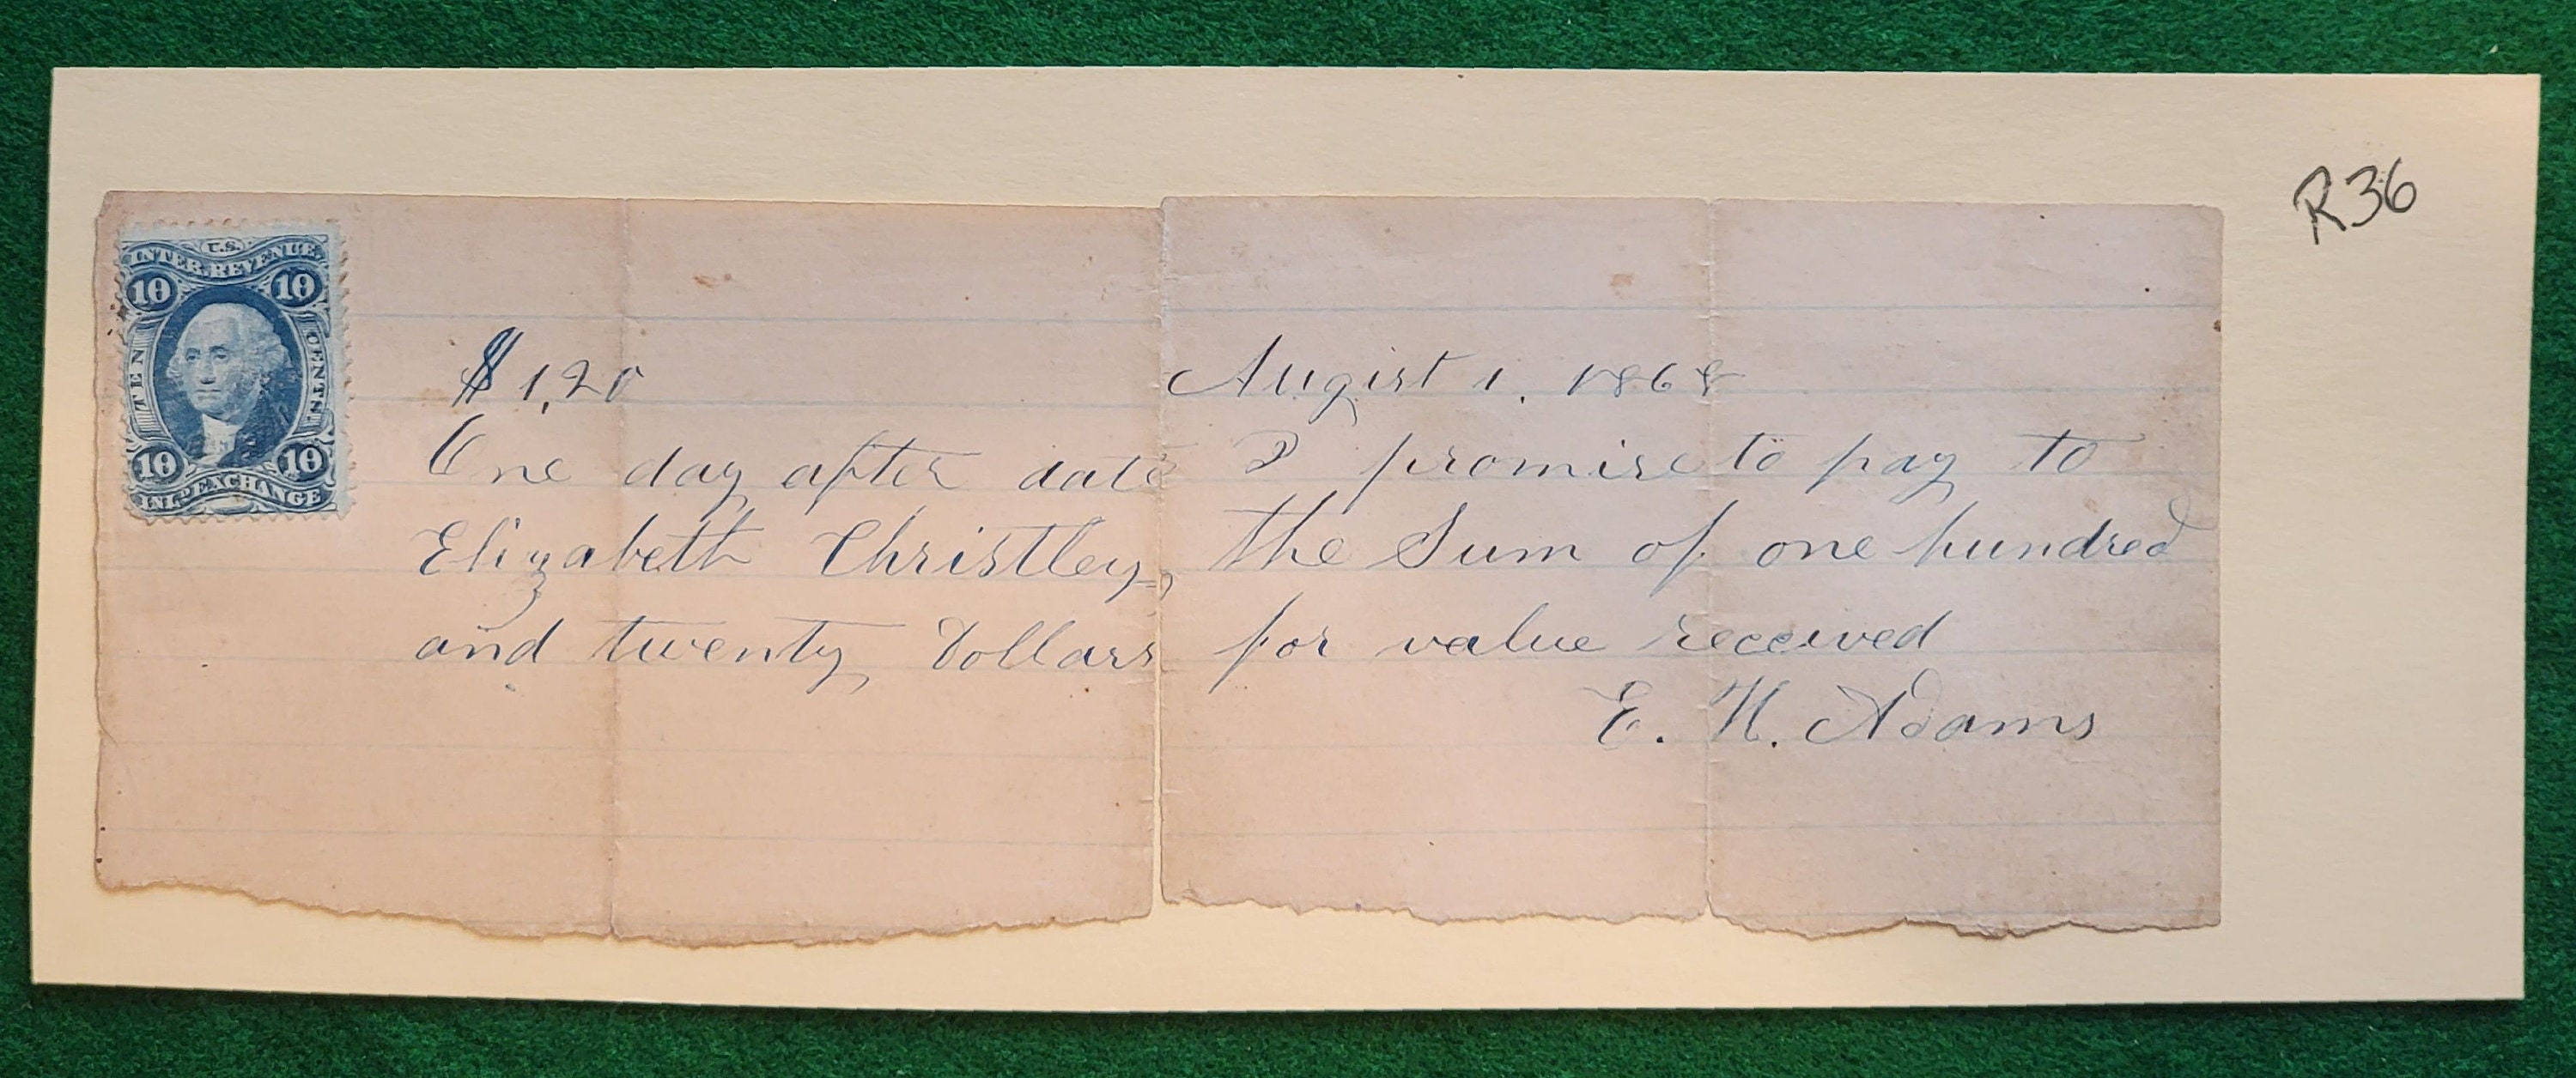 R36
U.S.
INTER. REVENUE.
10 10
TEN CENTS.
10 10
INL. EXCHANGE
$ 1,20 August 1. 1868
One day after date I promise to pay to
Elizabeth Christley, the Sum of one hundred
and twenty Dollars for value received
E. H. Adams